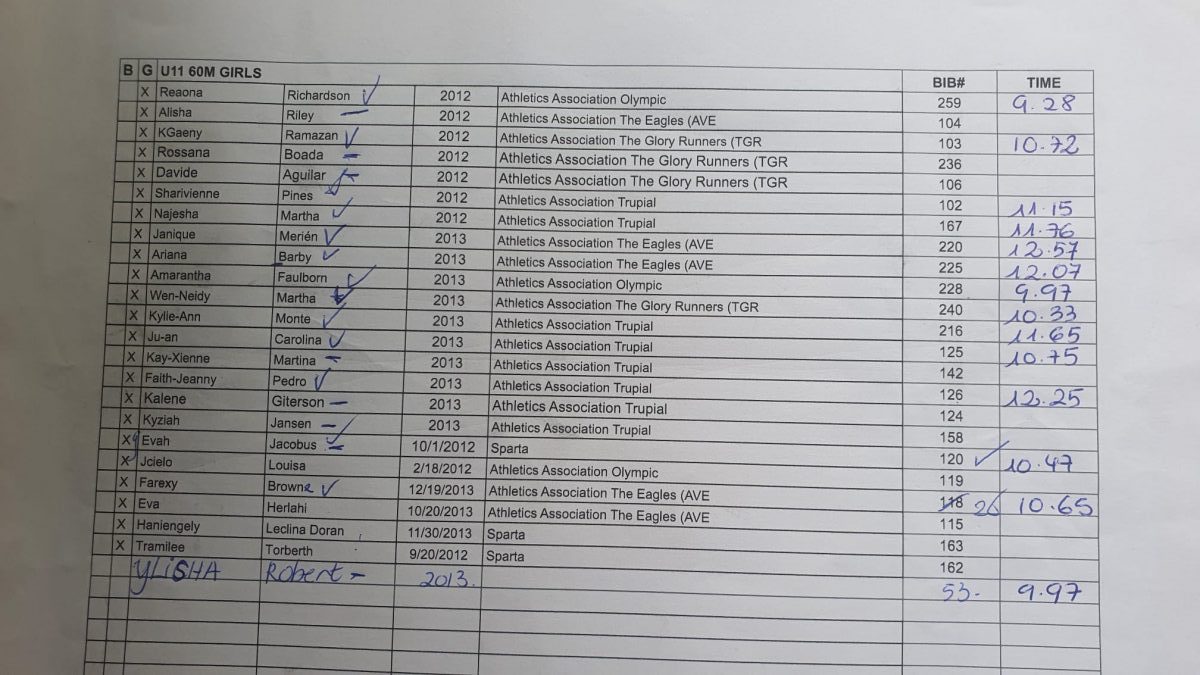 B G U11 60M GIRLS BIB# TIME
X Reaona Richardson ✓ 2012 Athletics Association Olympic 259 9.28
X Alisha Riley — 2012 Athletics Association The Eagles (AVE 104
X KGaeny Ramazan ✓ 2012 Athletics Association The Glory Runners (TGR 103 10.72
X Rossana Boada — 2012 Athletics Association The Glory Runners (TGR 236
X Davide Aguilar — 2012 Athletics Association The Glory Runners (TGR 106
X Sharivienne Pines ✓ 2012 Athletics Association Trupial 102 11.15
X Najesha Martha ✓ 2012 Athletics Association Trupial 167 11.76
X Janique Merién ✓ 2013 Athletics Association The Eagles (AVE 220 12.57
X Ariana Barby ✓ 2013 Athletics Association The Eagles (AVE 225 12.07
X Amarantha Faulborn ✓ 2013 Athletics Association Olympic 228 9.97
X Wen-Neidy Martha ✓ 2013 Athletics Association The Glory Runners (TGR 240 10.33
X Kylie-Ann Monte ✓ 2013 Athletics Association Trupial 216 11.65
X Ju-an Carolina ✓ 2013 Athletics Association Trupial 125 10.75
X Kay-Xienne Martina — 2013 Athletics Association Trupial 142
X Faith-Jeanny Pedro ✓ 2013 Athletics Association Trupial 126 12.25
X Kalene Giterson — 2013 Athletics Association Trupial 124
X Kyziah Jansen — 2013 Athletics Association Trupial 158
X Evah Jacobus ✓ 10/1/2012 Sparta 120 ✓ 10.47
X Jcielo Louisa 2/18/2012 Athletics Association Olympic 119
X Farexy Browne ✓ 12/19/2013 Athletics Association The Eagles (AVE 118 26 10.65
X Eva Herlahi 10/20/2013 Athletics Association The Eagles (AVE 115
X Haniengely Leclina Doran 11/30/2013 Sparta 163
X Tramilee Torberth 9/20/2012 Sparta 162
YLiSHA Robert — 2013. 53- 9.97